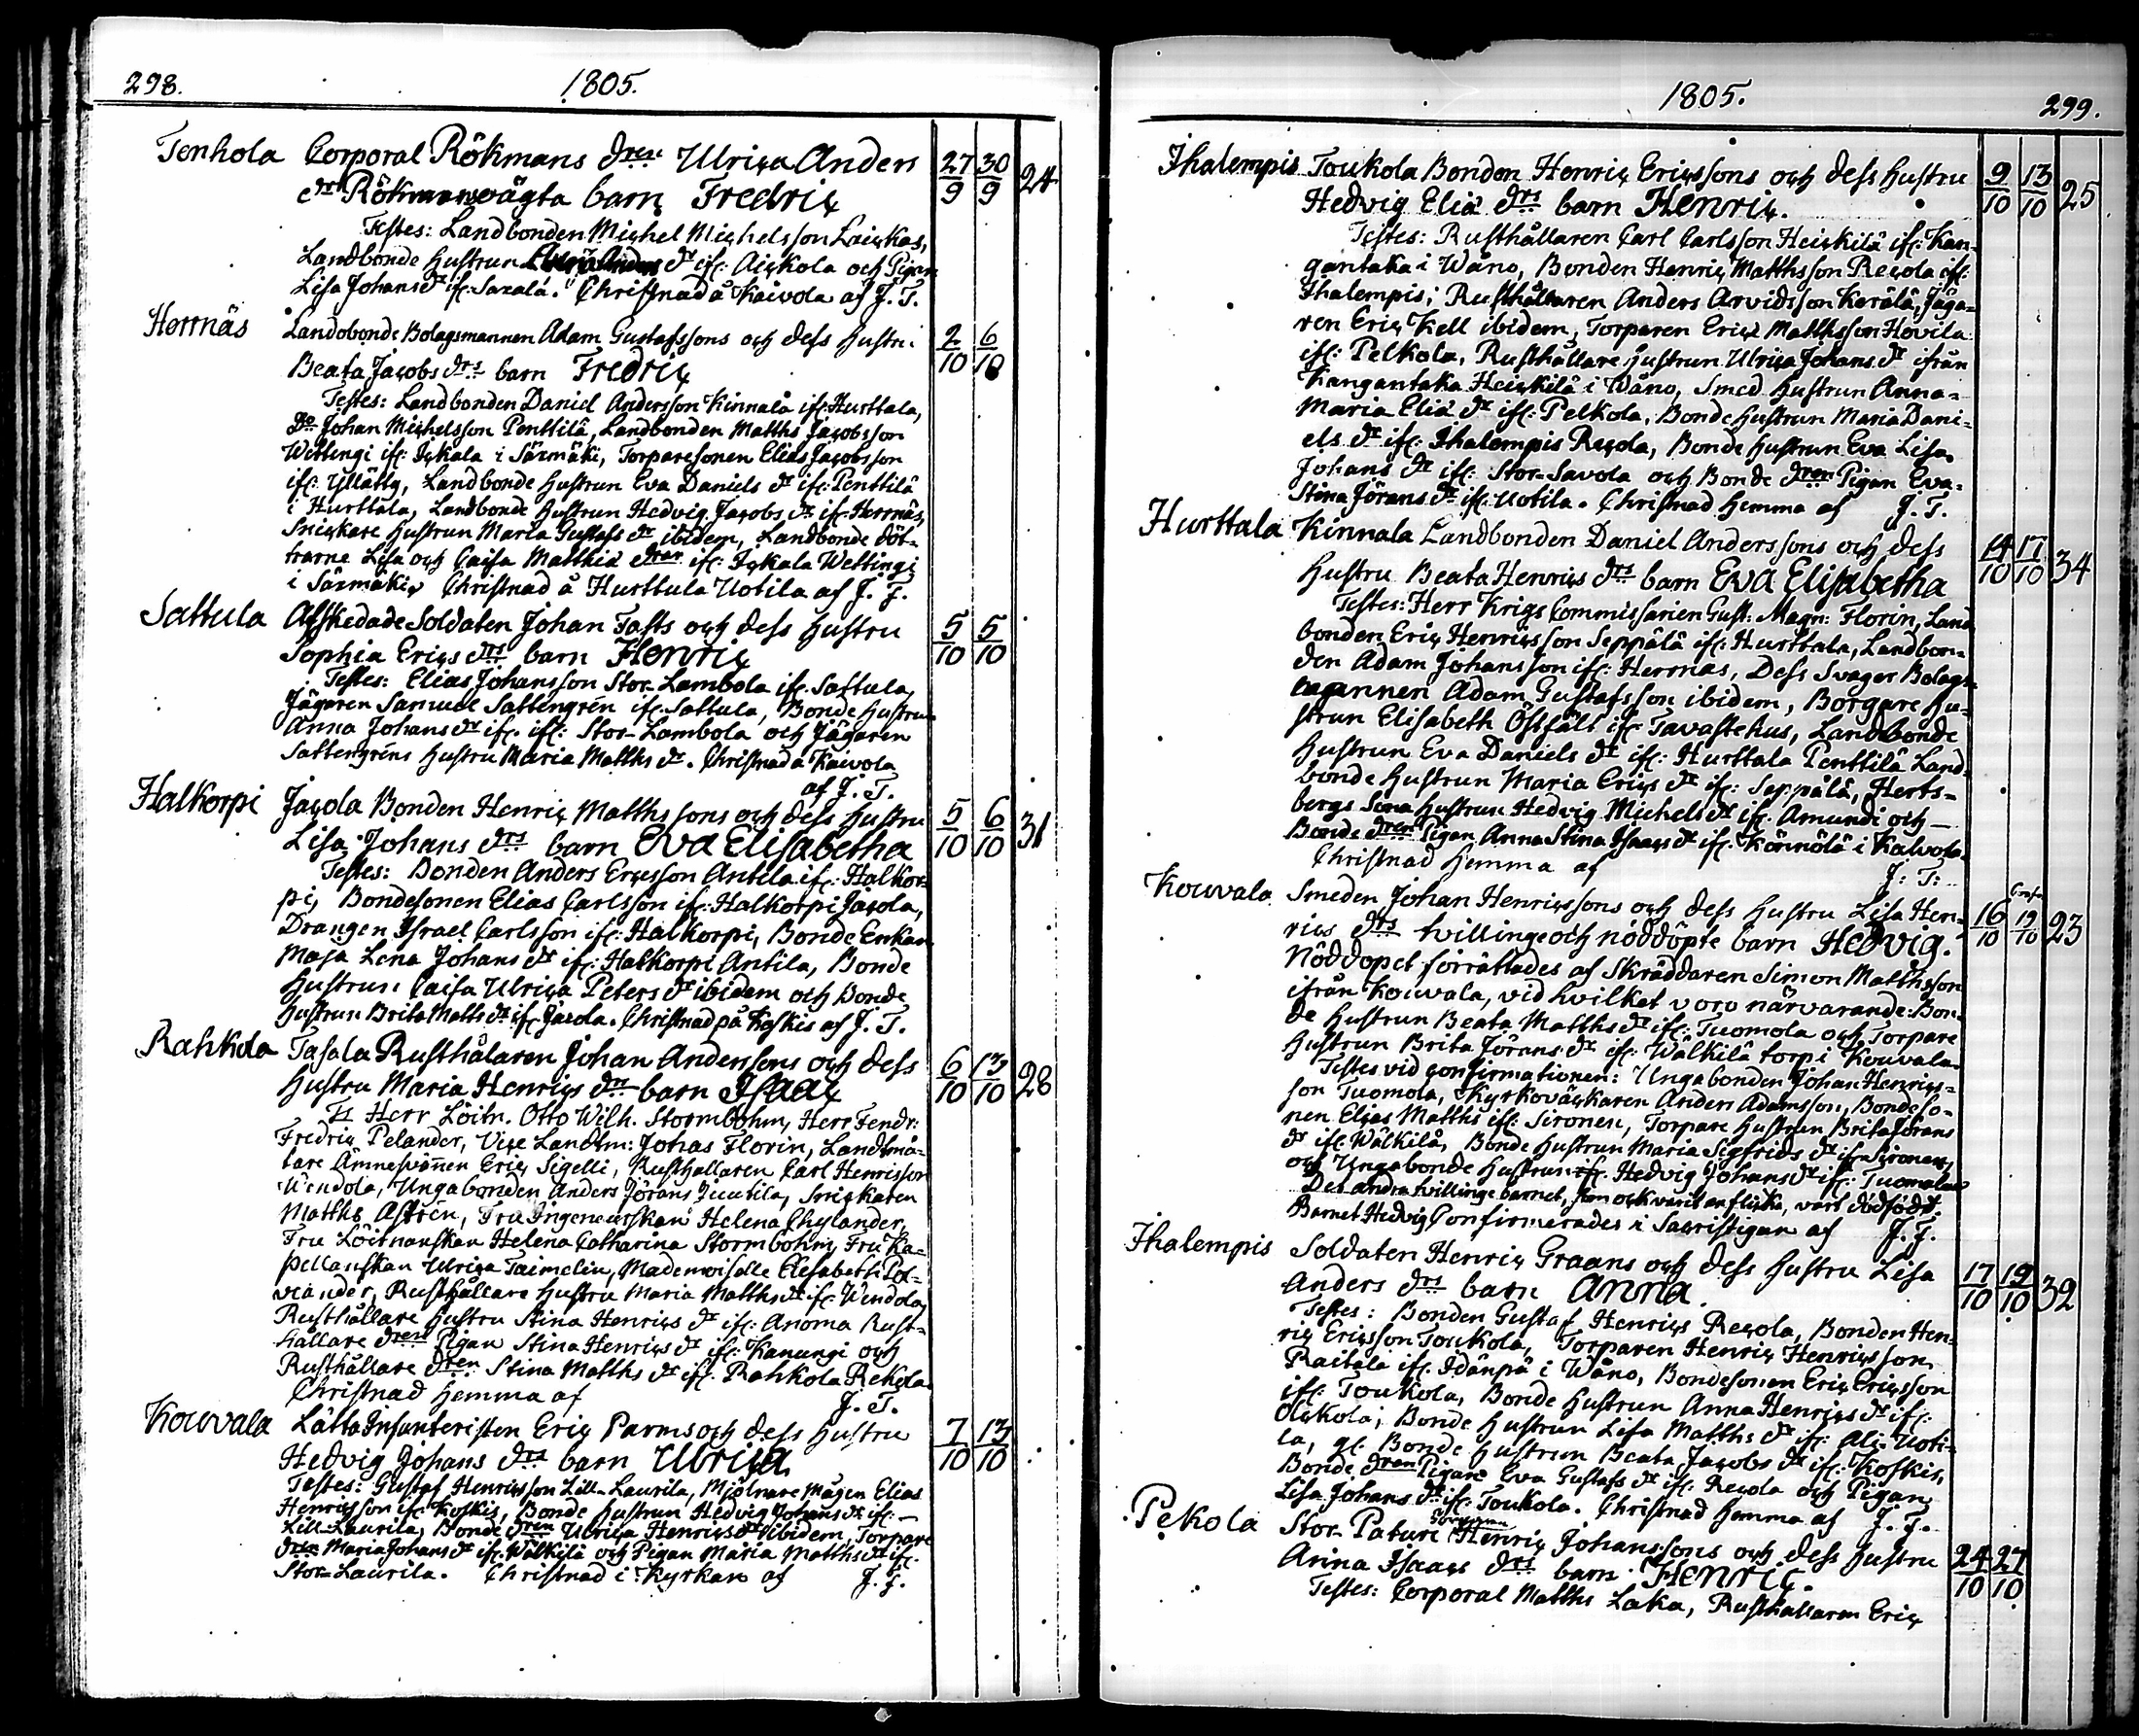 298. 1805.
Tenhola Corporal Rökmans dren Ulrica Anders 27/9 30/9 24
dr oägta barn Fredric
Testes: Landbonden Michel Michelsson Laickas,
Landbonde Hustrun dr ifr: Aickola och Pigan
Lisa Johans dr ifr: Saxala. Christnad å Kaivola af J. T.
Herrnäs Landbonde Bolagsmannen Adam Gustafssons och dess Hustru 2/10 6/10
Beata Jacobs drs barn Fredric
Testes: Landbonden Daniel Andersson Kinnala ifr: Hurttala,
Do Johan Michelsson Penttilä, Landbonden Matths Jacobsson
Wettingi ifr: Ickala i Särmäki, Torparesonen Elias Jacobsson
ifr: Yllätty, Landbonde Hustrun Eva Daniels dr ifr: Penttilä
i Hurttala, Landbonde Hustrun Hedvig Jacobs dr ifr: Herrnäs,
Snickare Hustrun Maria Gustafs dr ibidem, Landbonde döt-
trarne Lisa och Caisa Matthiæ drar ifr: Ickala Wettingi
i Särmäki, Christnad å Hurttula Uotila af J. T.
Sattula Afskedade Soldaten Johan Fasts och dess Hustru 5/10 5/10
Sophia Erics drs barn Henric
Testes: Elias Johansson Stor-Lambola ifr: Sattula,
Jägaren Samuel Sattengrén ifr: Sattula, Bonde Hustrun
Anna Johans dr ifr. ifr: Stor-Lambola och Jägaren
Sattengréns Hustru Maria Matths dr. Christnad å Kaivola
af J. T.
Halkorpi Jacola Bonden Henric Matthssons och dess Hustru 5/10 6/10 31
Lisa Johans drs barn Eva Elisabetha
Testes: Bonden Anders Ericsson Antila ifr: Halkor-
pi, Bondesonen Elias Carlsson ifr: Halkorpi Jacola,
Drängen Israel Carlsson ifr: Halkorpi, Bonde Enkan
Maja Lena Johans dr ifr: Halkorpi Antila, Bonde
Hustrun Caisa Ulrica Peters dr ibidem och Bonde
Hustrun Brita Matts dr ifr Jacola. Christnad på Koskis af J. T.
Rahkola Tasala Rusthålaren Johan Anderssons och dess 6/10 13/10 28
Hustru Maria Henrics drs barn Isaac
Ts Herr Löitn. Otto Wilh. Stormbohm, Herr Fendr:
Fredric Pelander, Vice Landtm: Johas Florin, Landtmä-
tare Ämnesvänen Eric Sigelli, Rusthållaren Carl Henricsson
Wendola, Ungabonden Anders Jörans Juutila, Snickaren
Matths Astrén, Fru Ingenieurskan Helena Chylander,
Fru Löitnanskan Helena Catharina Stormbohm, Fru Ka-
pellanskan Ulrica Taimelin, Mademoiselle Elisabeth Pol-
viander, Rusthållare Hustru Maria Matths dr ifr: Wendola,
Rusthållare Hustru Stina Henrics dr ifr: Anoma Rust-
hållare dren Pigan Stina Henrics dr ifr: Kanungi och
Rusthållare dren Stina Matths dr ifr: Rahkola Rekola.
Christnad hemma af J. T.
Kouvala Lätta Infanteristen Eric Parms och dess Hustru 7/10 13/10
Hedvig Johans drs barn Ulrica
Testes: Gustaf Henricsson Lill-Laurila, Mjölnare Mågen Elias
Henricsson ifr: Koskis, Bonde Hustrun Hedvig Johans dr ifr:
Lill-Laurila, Bonde dren Ulrica Henrics dr ibidem, Torpare
dren Maria Johans dr ifr: Wälkilä och Pigan Maria Matths dr ifr.
Stor-Laurila. Christnad i Kyrkan af J. T.
1805. 299.
Ihalempis Toukola Bonden Henric Ericssons och dess Hustru 9/10 13/10 25
Hedvig Eliæ drs barn Henric.
Testes: Rusthållaren Carl Carlsson Heickilä ifr: Kan-
gantaka i Wåno, Bonden Henric Matthsson Recola ifr:
Ihalempis, Rusthållaren Anders Arvidsson Kerälä, Jäga-
ren Eric Kell ibidem, Torparen Eric Matthsson Hovila
ifr: Pelkola, Rusthållare Hustrun Ulrica Johans dr ifrån
Kangantaka Heickilä i Wåno, Smed Hustrun Anna-
Maria Eliæ dr ifr: Pelkola, Bonde Hustrun Maria Dani-
els dr ifr: Ihalempis Recola, Bonde Hustrun Eva Lisa
Johans dr ifr: Stor-Savola och Bonde dren Pigan Eva-
Stina Jörans dr ifr: Uotila. Christnad hemma af J. T.
Hurttala Kinnala Landbonden Daniel Anderssons och dess 14/10 17/10 34
Hustru Beata Henrics drs barn Eva Elisabetha
Testes: Herr Krigs Commissarien Gust: Magn: Florin, Land
bonden Eric Henricsson Seppälä ifr: Hurttala, Landbon-
den Adam Johansson ifr: Herrnäs, Dess Svåger Bolags-
mannen Adam Gustafsson ibidem, Borgare Hu-
strun Elisabeth Östfält ifr Tavastehus, Landbonde
Hustrun Eva Daniels dr ifr: Hurttala Penttilä Land-
bonde Hustrun Maria Erics dr ifr: Seppälä, Herts-
bergs Hustrun Hedvig Michels dr ifr: Amundi och
Bonde dren Pigan Anna Stina Isaacs dr ifr: Könnölä i Kalvola
Christnad hemma af J: T:
Kouvala Smeden Johan Henricssons och dess Hustru Lisa Hen- 16/10 19/10 23
rics drs tvillinge och nöddöpte barn Hedvig.
Nöddopet förrättades af Skräddaren Simon Matthsson
ifrån Kouvala, vid hvilket voro närvarande: Bon-
de Hustrun Beata Matths dr ifr: Tuomola och Torpare
Hustrun Brita Jörans dr ifr: Wälkilä torp i Kouvala.
Testes vid confirmationen: Ungabonden Johan Henrics-
son Tuomola, Kyrkoväckaren Anders Adamsson, Bondeso-
nen Elias Matths ifr: Sironen, Torpare Hustrun Brita Jörans
dr ifr: Wälkilä, Bonde Hustrun Maria Sigfrids dr ifr: Sironen,
och Ungabonde Hustrun Hedvig Johans dr ifr: Tuomola.
Det andra tvillinge barnet, som ock varit en flicka, vart dödfödt.
Barnet Hedvig Confirmerades i Sacristigan af J. T.
Ihalempis Soldaten Henric Graans och dess Hustru Lisa 17/10 19/10 32
Anders drs barn Anna.
Testes: Bonden Gustaf Henrics Recola, Bonden Hen-
ric Ericsson Toukola, Torparen Henric Henricsson
Raitala ifr. Idänpä i Wåno, Bondesonen Eric Ericsson
ifr: Toukola, Bonde Hustrun Anna Henrics dr ifr:
Olckola, Bonde Hustrun Lisa Matths dr ifr: Ali-Uoti-
la, gl. Bonde Hustrun Beata Jacobs dr ifr: Koskis,
Bonde dren Pigan Eva Gustafs dr ifr: Recola och Pigan
Lisa Johans dr ifr: Toukola. Christnad hemma af J. T.
Pekola Stor-Pature Henric Johanssons och dess Hustru 24/10 27/10
Anna Isaacs drs barn Henric.
Testes: Corporal Matths Laka, Rusthållaren Eric